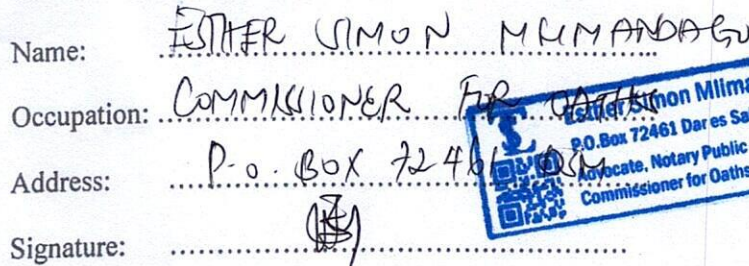 Name: ESTHER SIMON MLIMANDAGO
Occupation: COMMISSIONER FOR OATHS
Address: P.O. BOX 72461 DSM
Signature:
Esther Simon Mlima
P.O.Box 72461 Dar es Sa
Advocate, Notary Public
Commissioner for Oaths